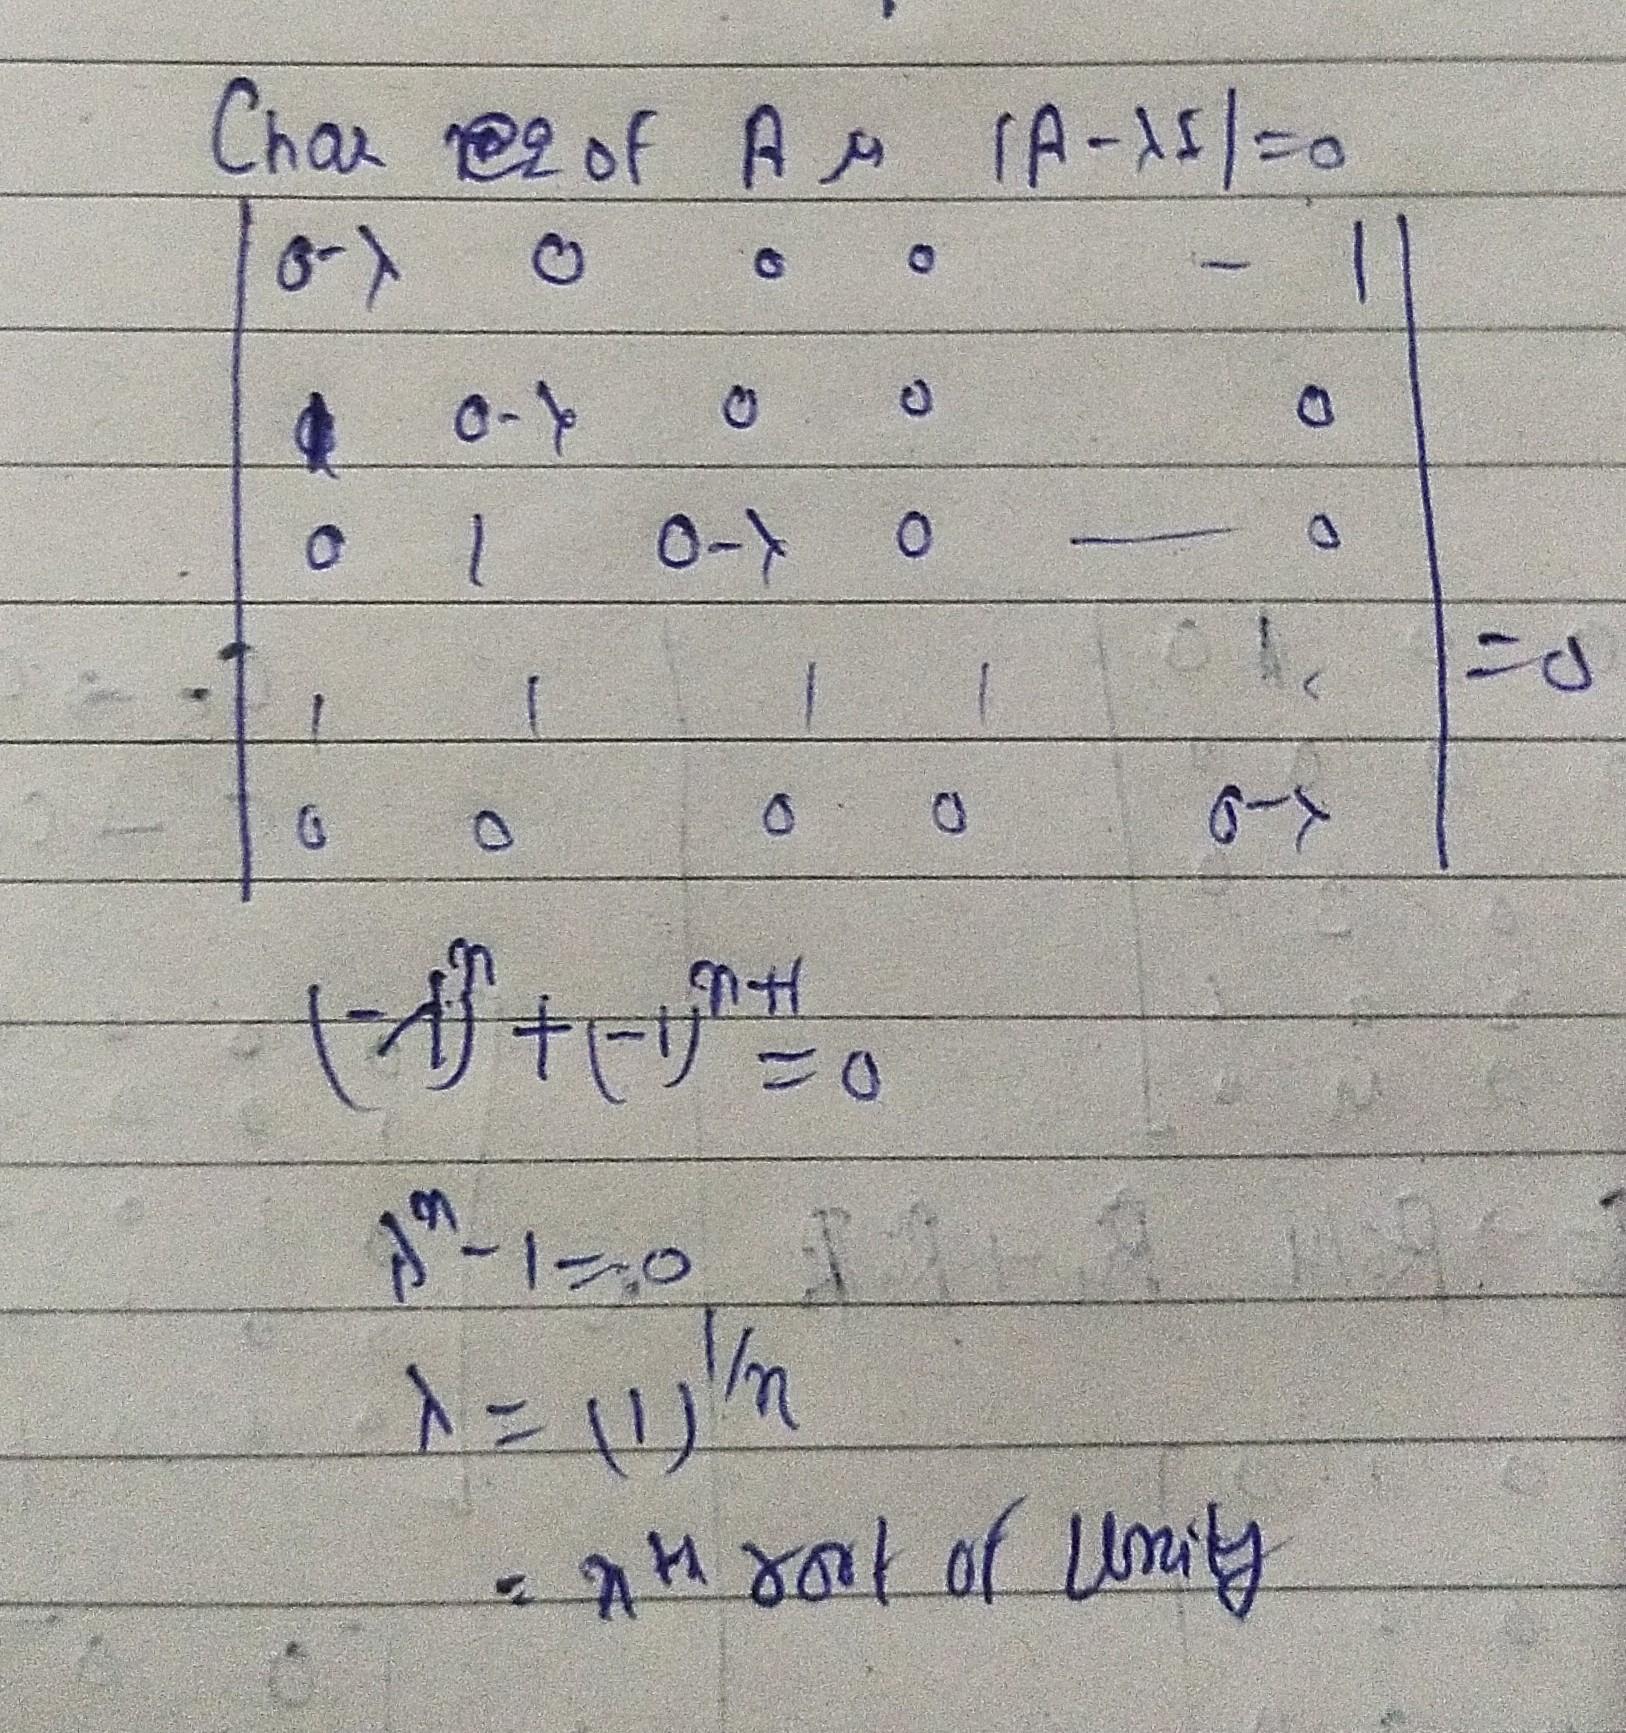 Char eq of A is |A-λI|=0
0-λ 0 0 0 - 1
1 0-λ 0 0 0
0 1 0-λ 0 — 0
| | | | =0
0 0 0 0 0-λ
(-λ)ⁿ+(-1)ⁿ⁺¹=0
λⁿ-1=0
λ=(1)^1/n
= nth root of Unity